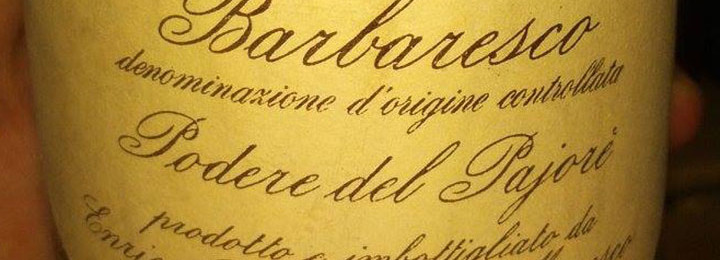 Barbaresco
denominazione d'origine controllata
Podere del Pajorè
prodotto e imbottigliato da